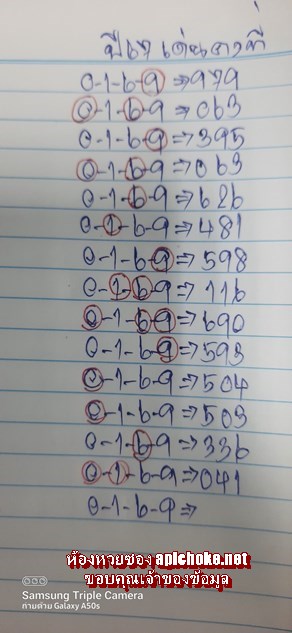 ปีนี้ เด่นตารที่
0-1-6-9 ⇒ 979
0-1-6-9 ⇒ 063
0-1-6-9 ⇒ 395
0-1-6-9 ⇒ 063
0-1-6-9 ⇒ 626
0-1-6-9 ⇒ 481
0-1-6-9 ⇒ 598
0-1-6-9 ⇒ 116
0-1-6-9 ⇒ 690
0-1-6-9 ⇒ 593
0-1-6-9 ⇒ 504
0-1-6-9 ⇒ 503
0-1-6-9 ⇒ 336
0-1-6-9 ⇒ 041
0-1-6-9 ⇒
ห้องหวยซอง apichoke.net
ขอบคุณเจ้าของข้อมูล
Samsung Triple Camera
ถ่ายด้วย Galaxy A50s